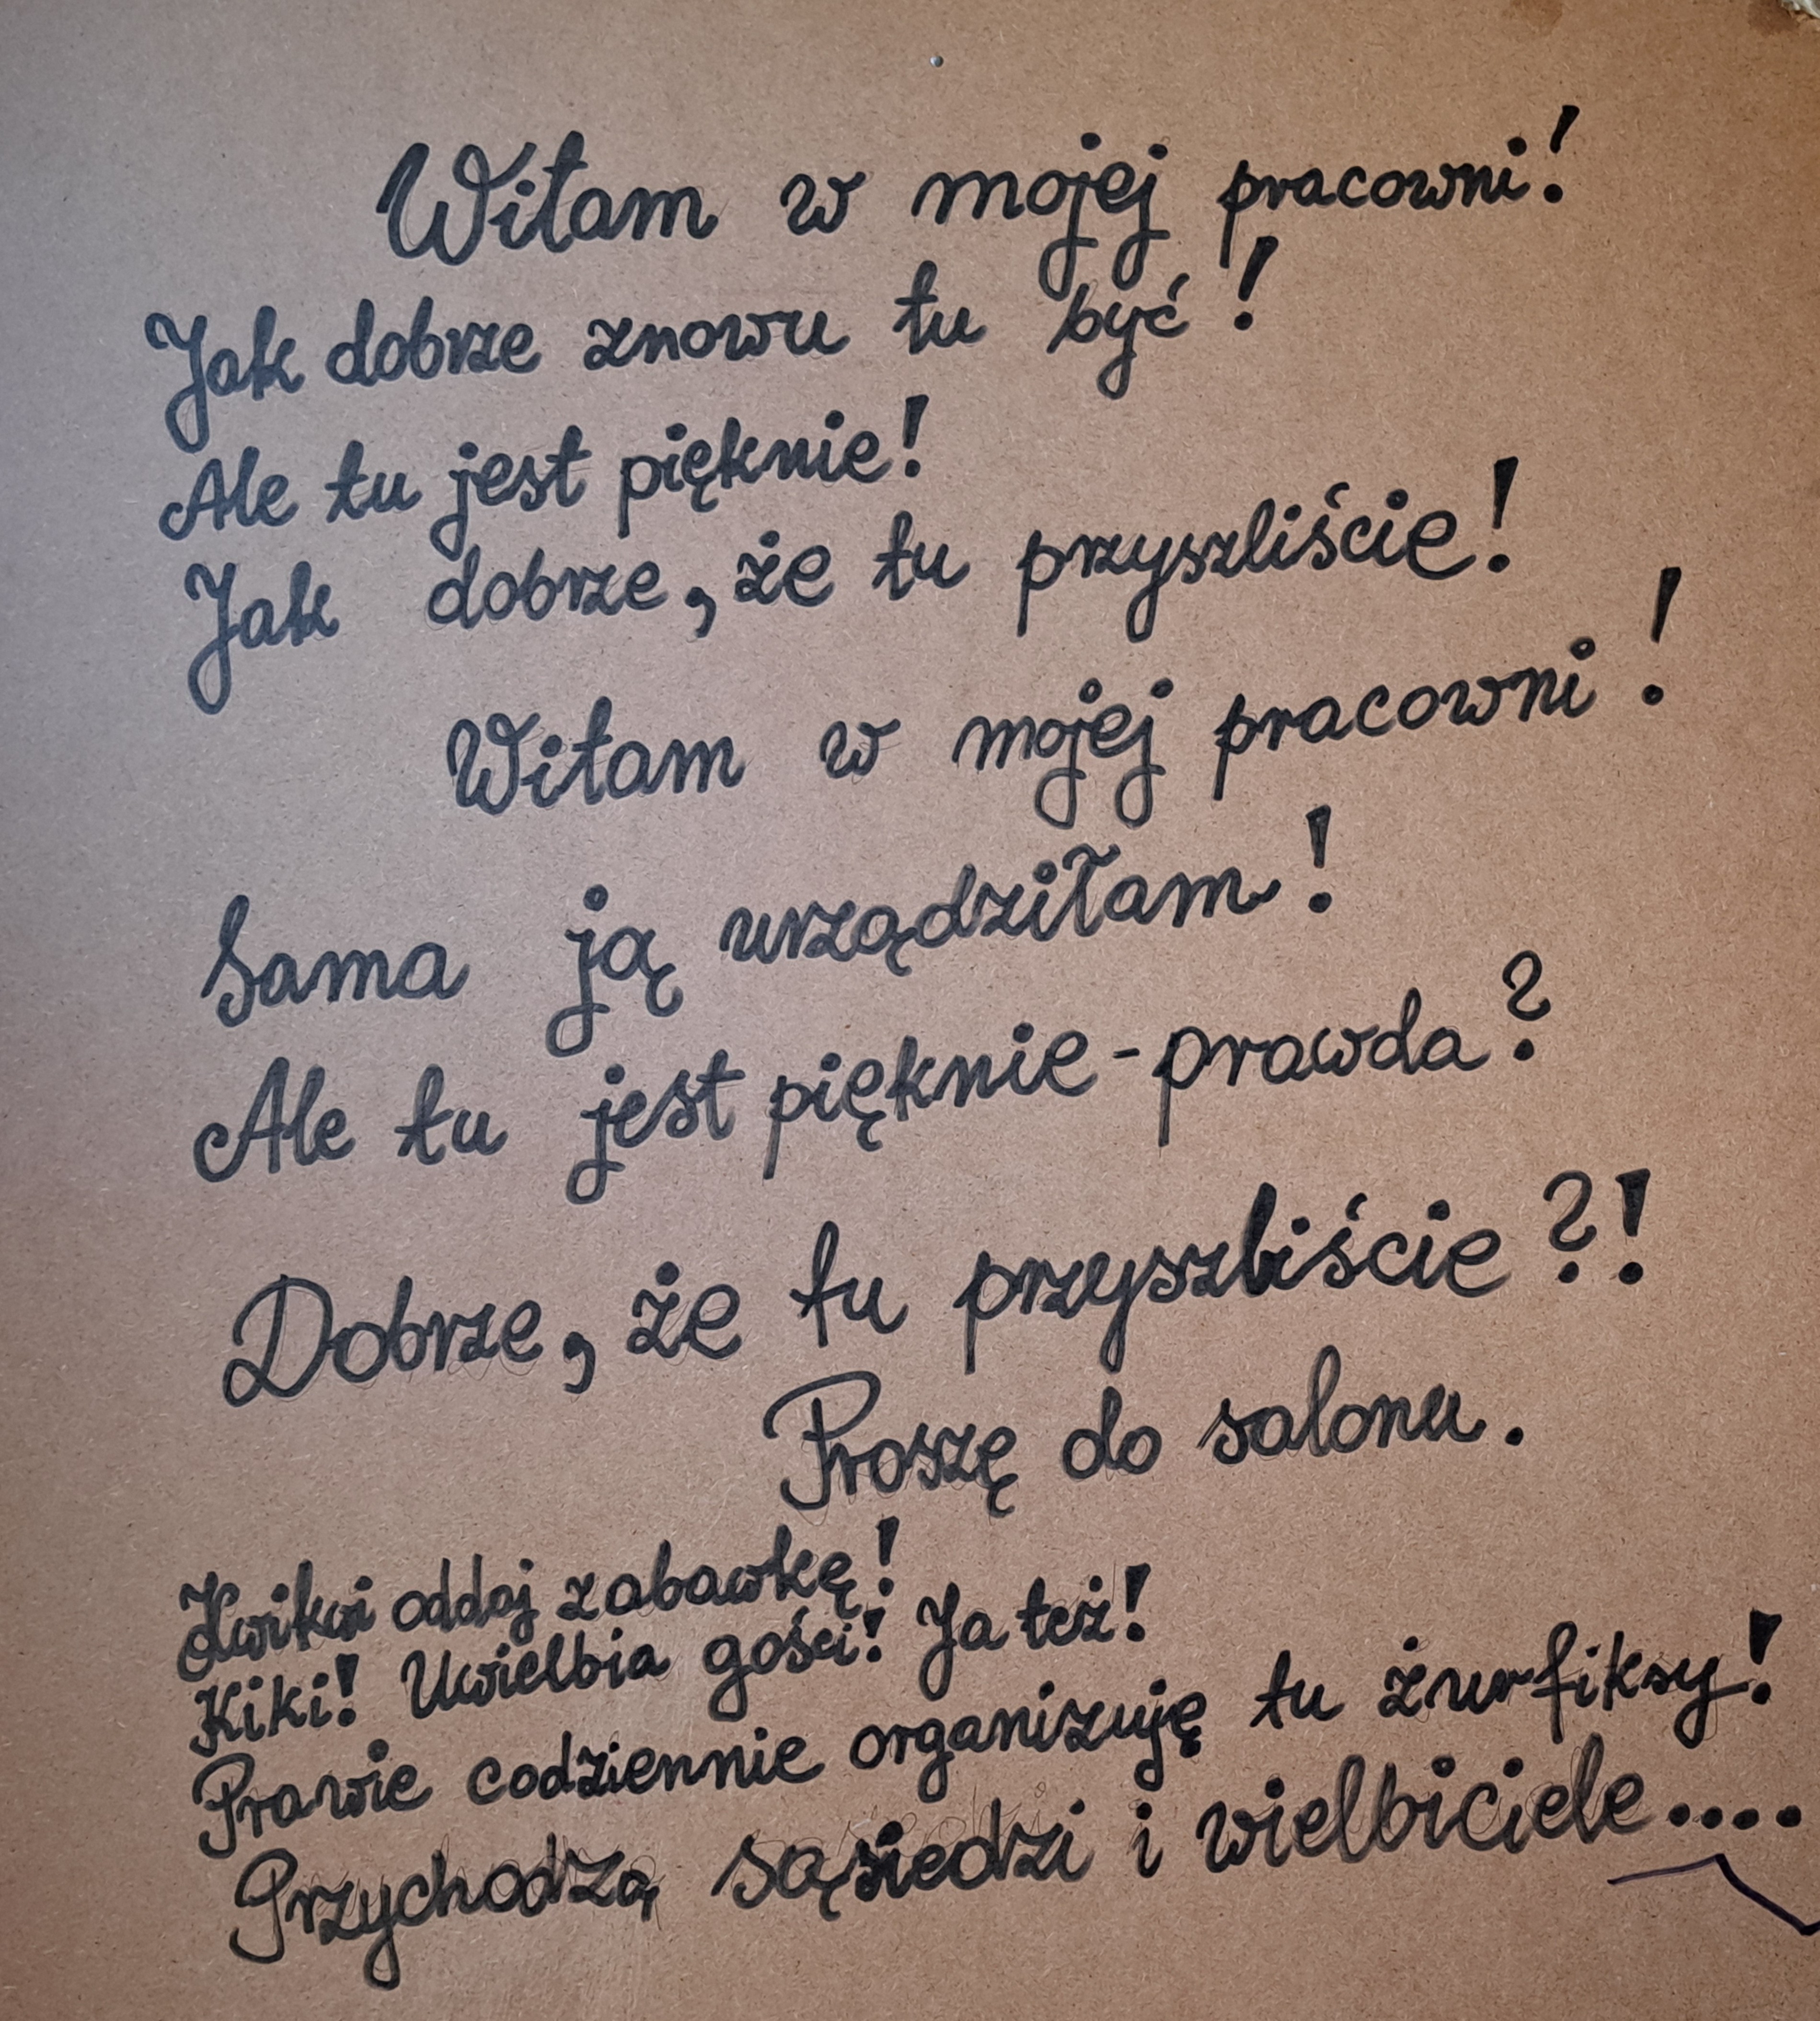 Witam w mojej pracowni!
Jak dobrze znowu tu być!
Ale tu jest pięknie!
Jak dobrze, że tu przyszliście!
Witam w mojej pracowni!
Sama ją urządziłam!
Ale tu jest pięknie - prawda?
Dobrze, że tu przyszliście?!
Proszę do salonu.
Kwikwi oddaj zabawkę!
Kiki! Uwielbia gości! Ja też!
Prawie codziennie organizuję tu żurfiksy!
Przychodzą sąsiedzi i wielbiciele....